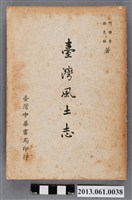 著
臺灣風土志
臺灣中華書局印行
2013.061.0038